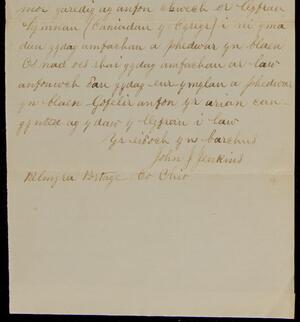 mor garedig ag anfon chwech or llyfrau
hymnau (Caniadau y Cysegr) i ni yma
dau gydag amfachau a phedwar yn blaen
Os nad oes rhai gydag amfachau ar law
anfonwch dau gydag eur ymylau a phedwar
yn blaen Gofelir anfon yr arian can
gynted ag y daw y llyfrau i law
Yr eiddoch yn barchus
John J Jenkins
Portage Co Ohio